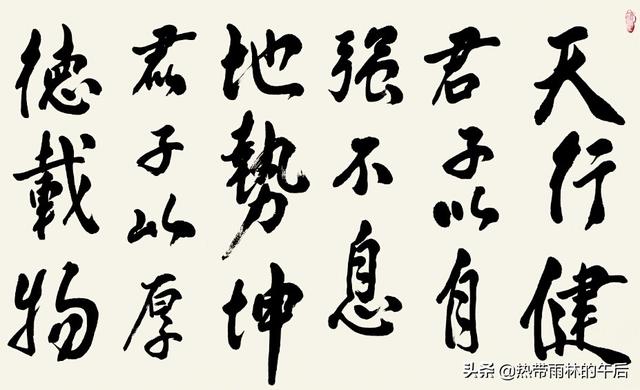 天行健
君子以自
强不息
地勢坤
君子以厚
德載物
头条 @热带雨林的午后